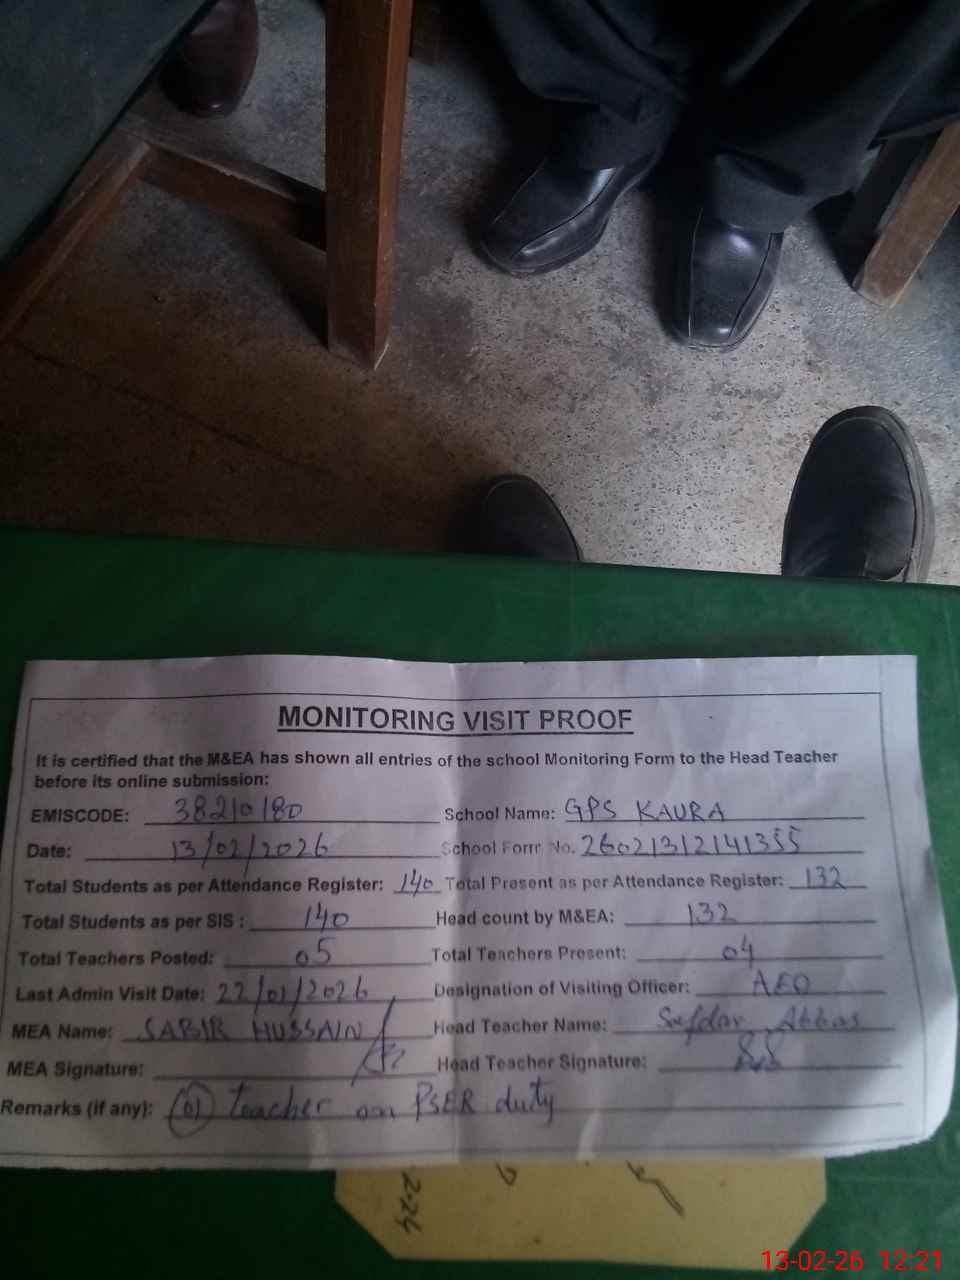 MONITORING VISIT PROOF
It is certified that the M&EA has shown all entries of the school Monitoring Form to the Head Teacher
before its online submission:
EMISCODE: 38210180 School Name: GPS KAURA
Date: 13/02/2026 School Form No. 26021312141355
Total Students as per Attendance Register: 140 Total Present as per Attendance Register: 132
Total Students as per SIS : 140 Head count by M&EA: 132
Total Teachers Posted: 05 Total Teachers Present: 04
Last Admin Visit Date: 22/01/2026 Designation of Visiting Officer: AEO
MEA Name: SABIR HUSSAIN Head Teacher Name: Safdar Abbas
MEA Signature: Head Teacher Signature:
Remarks (if any): (01) teacher on PSER duty
2-24
13-02-26 12:21